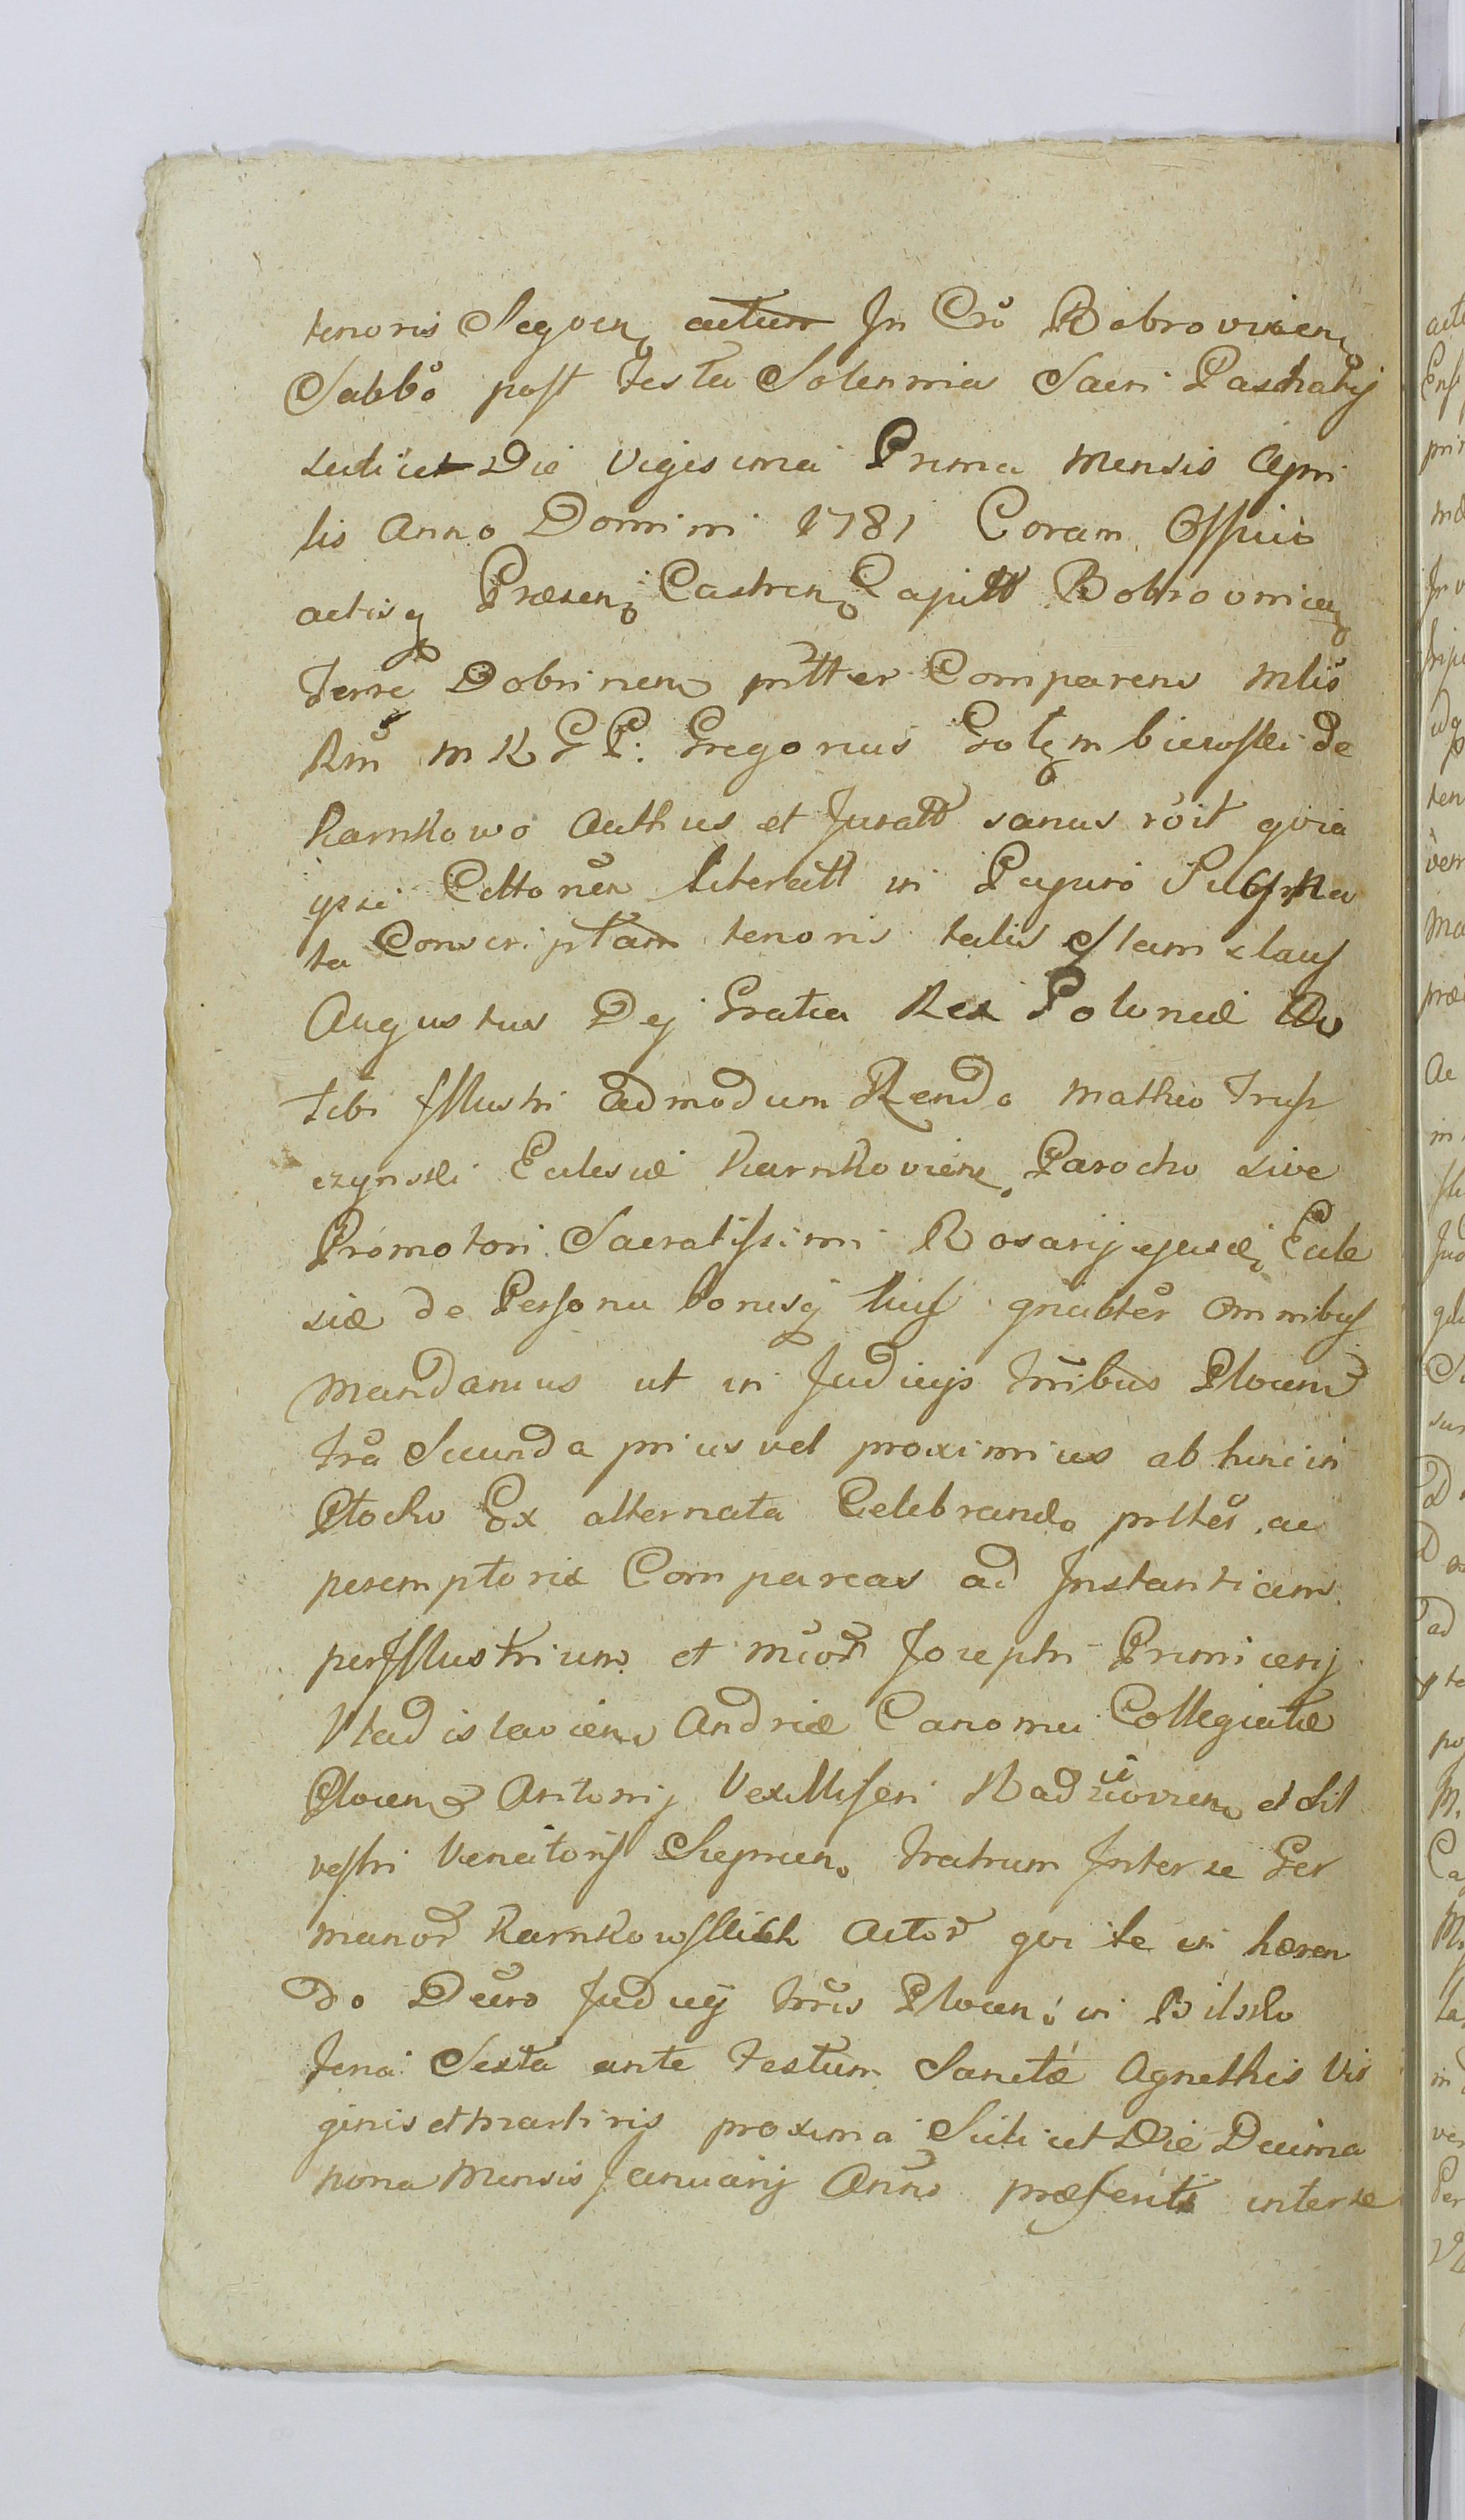 tenoris Seqven. actum In Cro Bobrovicen.
Sabbo post Festa Solennia Sacri Paschatis
scilicet Die Vigesima Prima Mensis Apri
lis Anno Domini 1781 Coram Officio
actisq Præsen: Castren. Capitt Bobrovnicen.
Terræ Dobrinen. prltter Comparens Mlis
Rm M R G P: Gregorius Gołęmbiewski de
Karnkowo Authus et Juratt sanus roit qvia
ipse Cittonem literatt in Papiro Sugna
ta Conscriptam tenoris talis Stanislaus
Augustus Dej Gratia Rex Poloniæ
tibi Illustri admodum Rendo Matheo Trusz
czynski Eclesiæ Karnkovien. Parocho sive
Promotori Sacratissimi Rosarij ejusd. Ecle
siæ de Persona bonisq tuis gnabter omnibus
Mandamus ut in Judicijs Trribus Plocen.
tra Secunda prius vel proximius ab hinc in
Płocko Ex alternata Celebrando prltter ac
peremptorie Compareas ad Instantiam
perIllustrium et Mcor Josephi Primicerij
Vladislavien. Andreæ Canonici Collegiatæ
Plocen. Antonij Vexilliferi Radziovien. et Sil
vestri Venatoris Siepricen. Fratrum Inter se Ger
manor Karnkowskich Actor qvi te in hæren
do Decro Judicij Trris Plocen: in Bilsko
Feria Sexta ante Festum Sanctæ Agnethis Vir
ginis et Martiris proxima Scilicet Die Decima
nona Mensis Januarij Anno præsenti inter se